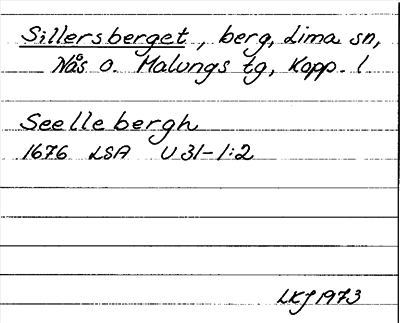 Sillersberget, berg, Lima sn,
Nås o. Malungs tg, Kopp. l
Seellebergh
1676 LSA U31-1:2
LKJ 1973